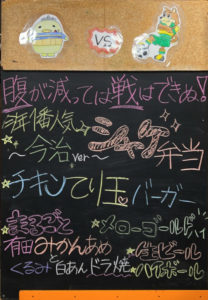 VS
腹が減っては戦はできぬ!
毎年1番人気
〜今治ver〜
シャケ弁当
チキンてり玉バーガー
まるごと
有田みかんあめ
くるみと白あんドラ焼
メローゴールドハイ
生ビール
ハイボール